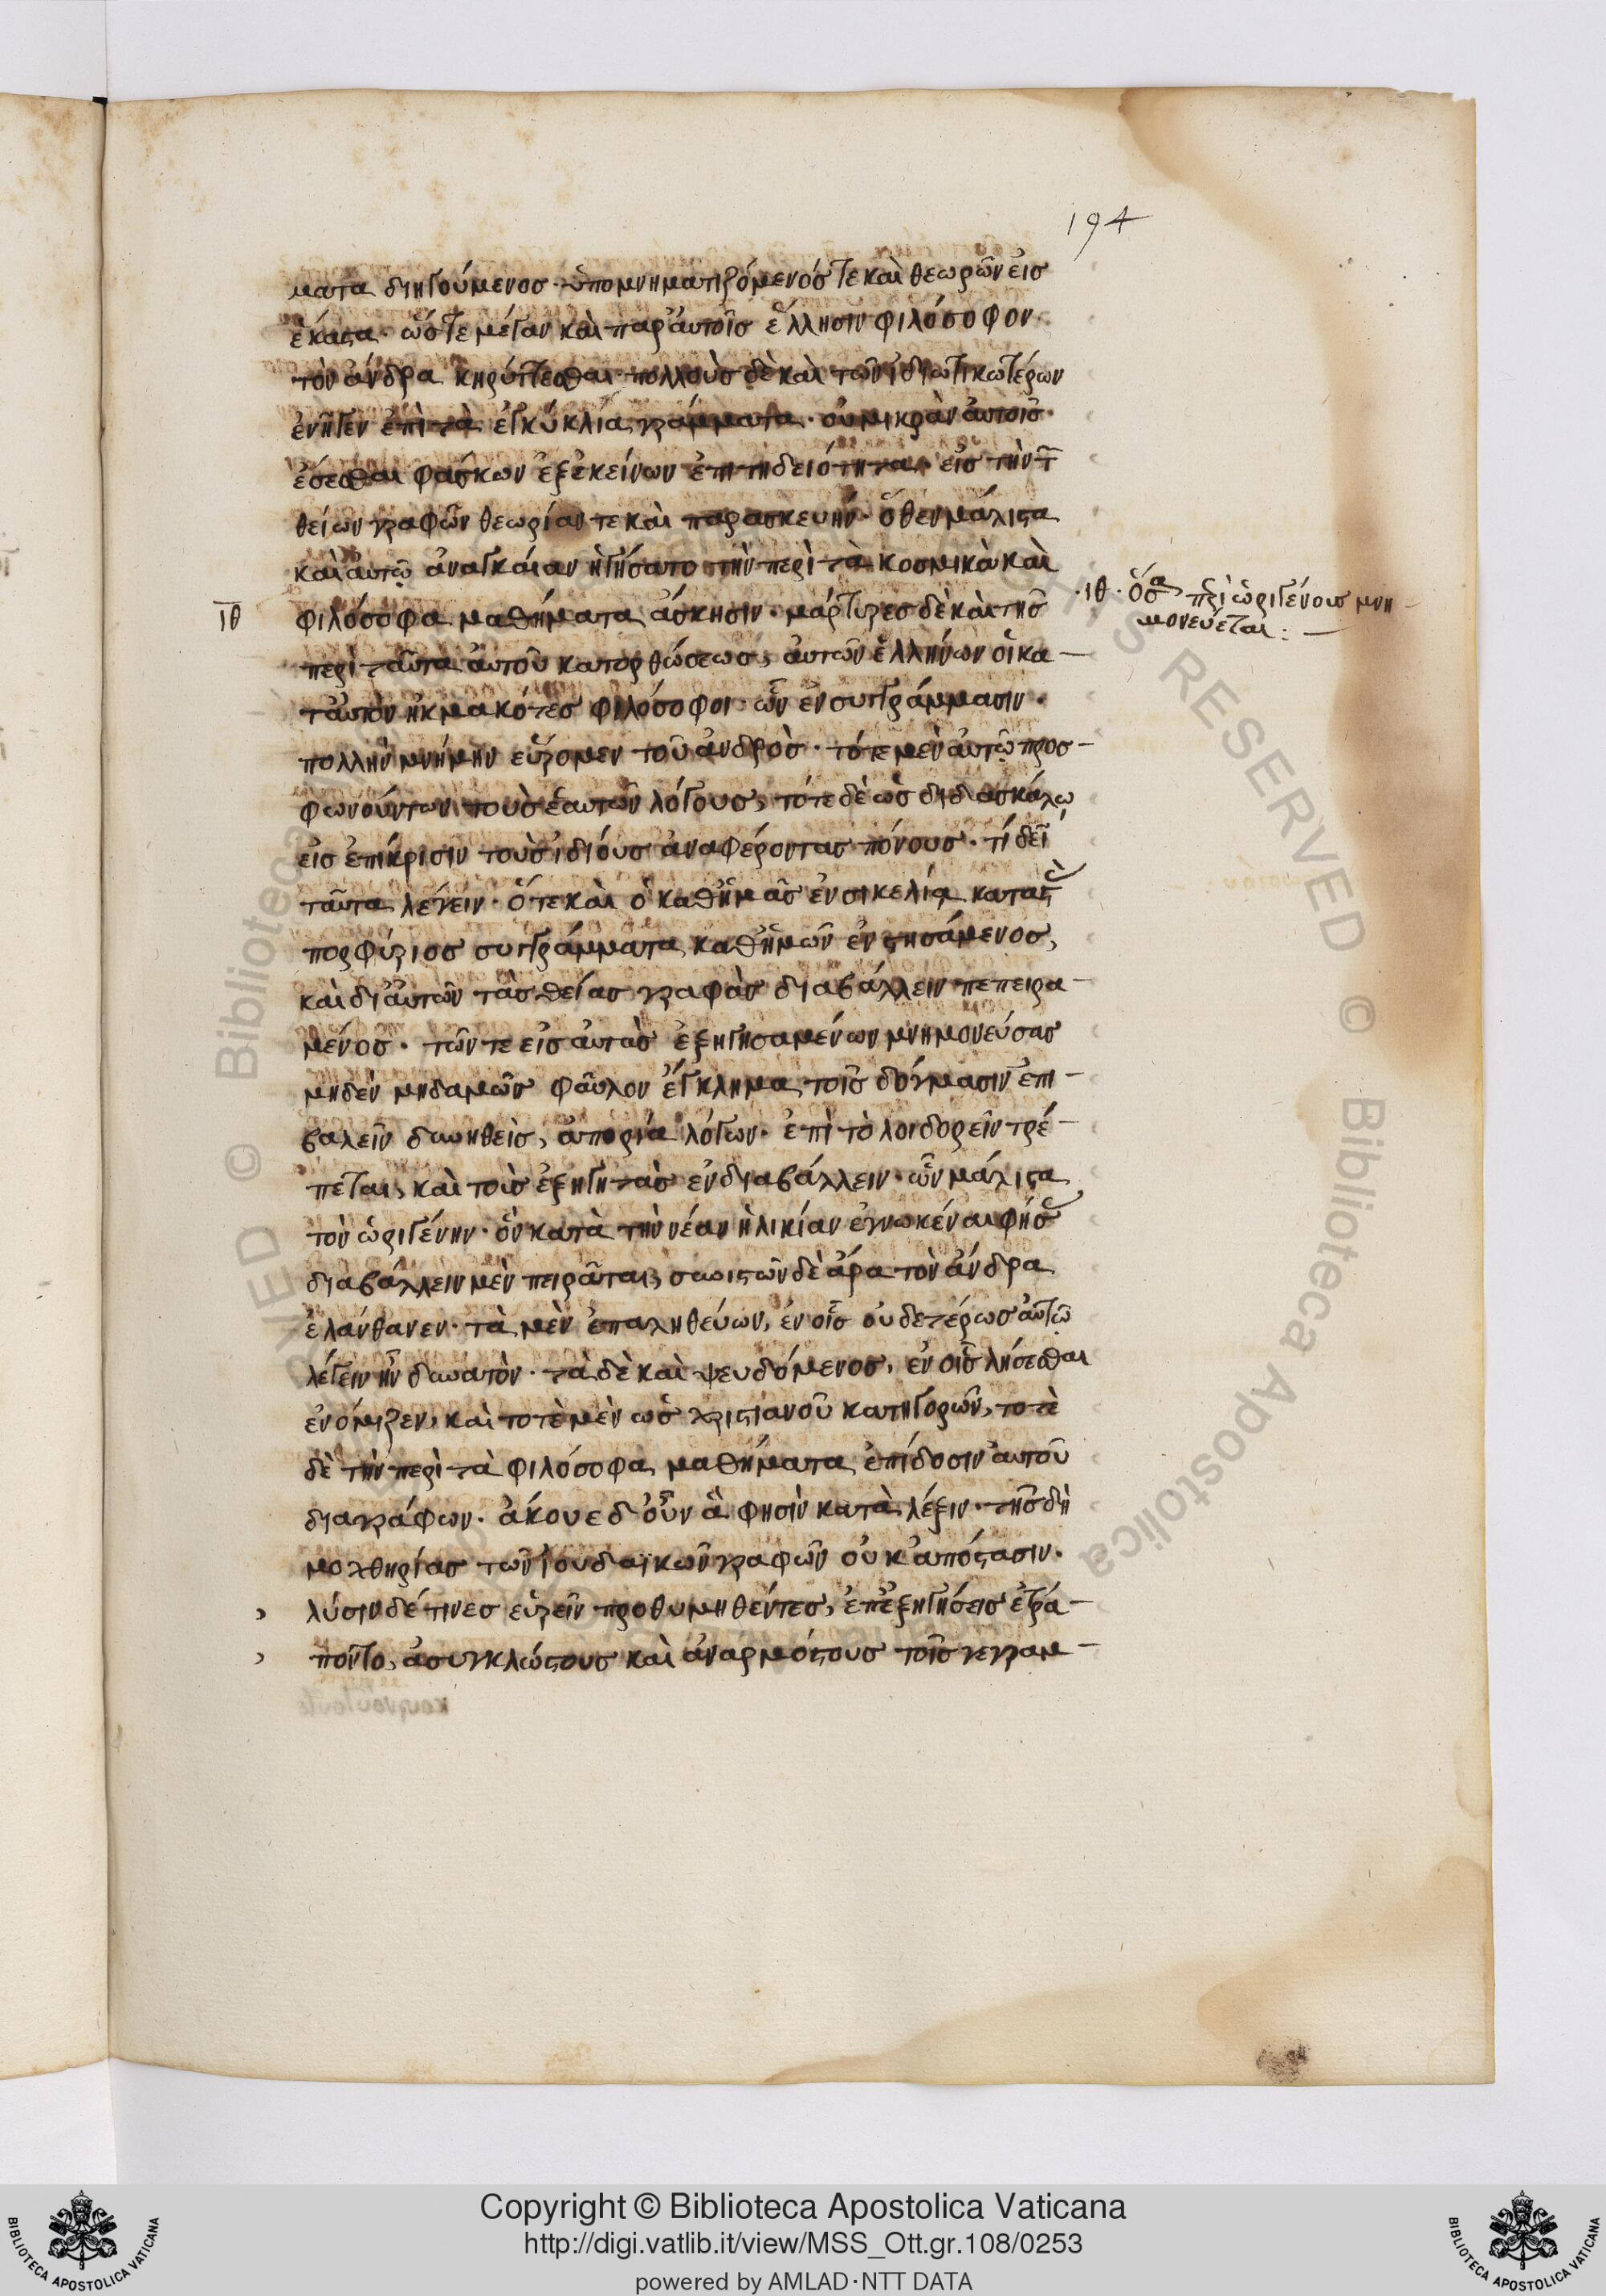 194
ματα διηγούμενος· ὑπομνηματιζόμενός τε καὶ θεωρῶν εἰς
ἕκαστα· ὥστε μέγαν καὶ παρ' αὐτοῖς ἕλλησιν φιλόσοφον
τὸν ἄνδρα κηρύττεσθαι· πολλοὺς δὲ καὶ τῶν ἰδιωτικωτέρων
ἐνῆγεν ἐπὶ τὰ ἐγκύκλια γράμματα· οὐ μικρὰν αὐτοῖς·
ἔσεσθαι φάσκων ἐξ ἐκείνων ἐπιτηδειότητα· εἰς τὴν τ
θείων γραφῶν θεωρίαν τε καὶ παρασκευήν· ὅθεν μάλιστα
καὶ αὐτῷ ἀναγκαίαν ἡγήσατο τὴν περὶ τὰ κοσμικὰ καὶ
ΙΘ φιλόσοφα μαθήματα ἄσκησιν· μάρτυρες δὲ καὶ τῆς
·ιθ· ὅσα περὶ ὠριγένους μνη
μονεύεται: —
περὶ ταῦτα αὐτοῦ κατορθώσεως, αὐτῶν ἑλλήνων οἱ κα–
ταυτὸν ἠκμακότες φιλόσοφοι· ὧν ἐν συγγράμμασιν·
πολλὴν μνήμην εὕρομεν τοῦ ἀνδρὸς· τότε μὲν αὐτῷ προς–
φωνούντων τοὺς ἑαυτῶν λόγους, τότε δὲ ὡς διδασκάλω
εἰς ἐπίκρισιν τοὺς ἰδίους ἀναφέροντας πόνους· τί δεῖ
ταῦτα λέγειν· ὅτε καὶ ὁ καθ' ἡμᾶς ἐν σικελία καταστὰς
πορφύριος συγγράμματα καθ' ἡμῶν ἐνστησάμενος,
καὶ δι' αὐτῶν τὰς θείας γραφὰς διαβάλλειν πεπειρα–
μένος· τῶν τε εἰς αὐτὰς ἐξηγησαμένων μνημονεύσας
μηδὲν μηδαμῶς φαῦλον ἔγκλημα τοῖς δόγμασιν ἐπι–
βαλεῖν δυνηθεὶς, ἀπορία λόγων· ἐπὶ τὸ λοιδορεῖν τρέ–
πεται, καὶ τοὺς ἐξηγητὰς ἐνδιαβάλλειν· ὧν μάλιστα
τὸν ὠριγένην· ὃν κατὰ τὴν νέαν ἡλικίαν ἐγνωκέναι φήσας
διαβάλλειν μὲν πειρᾶται, συνιστῶν δὲ ἄρα τὸν ἄνδρα
ἐλάνθανεν· τὰ μὲν ἐπαληθεύων, ἐν οἷς οὐδετέρως αὐτῷ
λέγειν ἦν δυνατὸν· τὰ δὲ καὶ ψευδόμενος, ἐν οἷς λήσεσθαι
ἐνόμιζεν, καὶ τοτὲ μὲν ὡς χριστιανοῦ κατηγορῶν, τοτὲ
δὲ τὴν περὶ τὰ φιλόσοφα μαθήματα ἐπίδοσιν αὐτοῦ
διαγράφων· ἄκουε δ' οὖν ἅ φησὶν κατὰ λέξιν· τῆς δὴ
μοχθηρίας τῶν ἰουδαϊκῶν γραφῶν οὐκ ἀπόστασιν·
› λύσιν δέ τινες εὑρεῖν προθυμηθέντες, ἐπ' ἐξηγήσεις ἐτρά–
› ποντο, ἀσυγκλώστους καὶ ἀναρμόστους τοῖς γεγραμ–
Copyright © Biblioteca Apostolica Vaticana
http://digi.vatlib.it/view/MSS_Ott.gr.108/0253
powered by AMLAD·NTT DATA
BIBLIOTECA APOSTOLICA VATICANA
BIBLIOTECA APOSTOLICA VATICANA